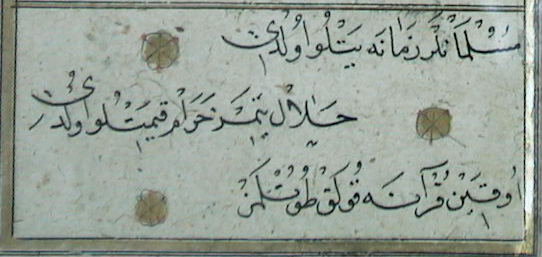 مُسْلْمَانْلَرْ زَمَانَه يَتْلُو اُولْدِى
حَلَالْ يِنْمَزْ حَرَامْ قِيمَتْلُو اُولْدِى
اُوقِنَنْ قُرْآنَه قُولَقْ طُوتُلْمَزْ